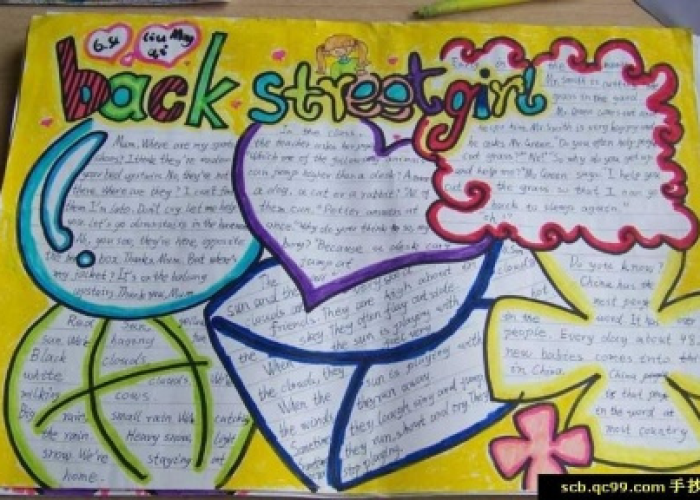 6.su liu May qi
back street girl
Mum, Where are my sports
shoes? I think they're under
your bed upstairs. No, they're not
there. Where are they? I can't find
them I'm late. Don't cry. let me help
you. Let's go downstairs in the
Ah, you see, they're here, opposite
the box. Thanks, Mum. But where's
my jacket? It's on the balcony
upstairs. Thank you, Mum.
In the class,
the teacher asks her pupils
which one of the following animals
can jump higher than a desk? A
a dog, a cat or a rabbit? "All of
them can." Peter answers at
once. "Why do you think so, my
boy? "Because a desk can't
jump at
Mr. Smith is cutting
grass in the yard
Mr. Green comes out and
Mr. Smith is very happy and
he asks Mr. Green." Do you often help people
cut grass?" "No!" "So why do you get up
and help me?" Mr Green says." I help you
cut the grass so that I can go
back to sleep again."
The
sun and the
clouds are very good
friends. They are high above in
sky. They often play outside.
When the sun is playing with
the clouds, they feel very
When the sun is playing with
the winds, they run away.
Sometimes they laugh, sing and jump.
Sometimes they run, shout and cry. They
stop playing.
clouds
hot
Do you know?
China has the
most people
in the world. It has
people. Every day about 48.
new babies comes into the
in China.
China
is that
in the world at
most country.
Red sun. yellow
sun. We're haging
Black clouds.
white clouds. We're
milking cows.
Big rain. small rain. We're catching
the rain. Heavy snow. light
snow. We're staying at
home.
scb.qc99.com 手抄